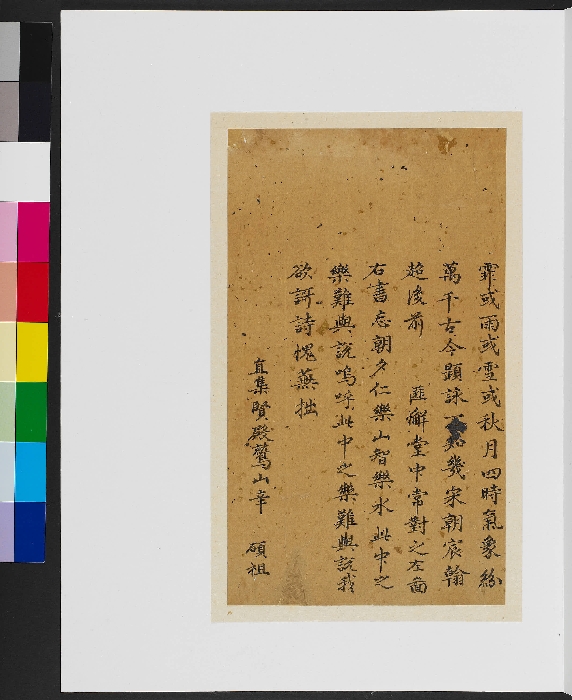 霏或雨或雪或秋月四時氣象紛
萬千古今題詠知幾宋朝宸翰
超後前 匪懈堂中常對之左面
右書忘朝夕仁樂山智樂水此中之
樂難與說嗚呼此中之樂難與說我
欲訶詩愧蕪拙
直集賢殿鷲山辛 碩祖